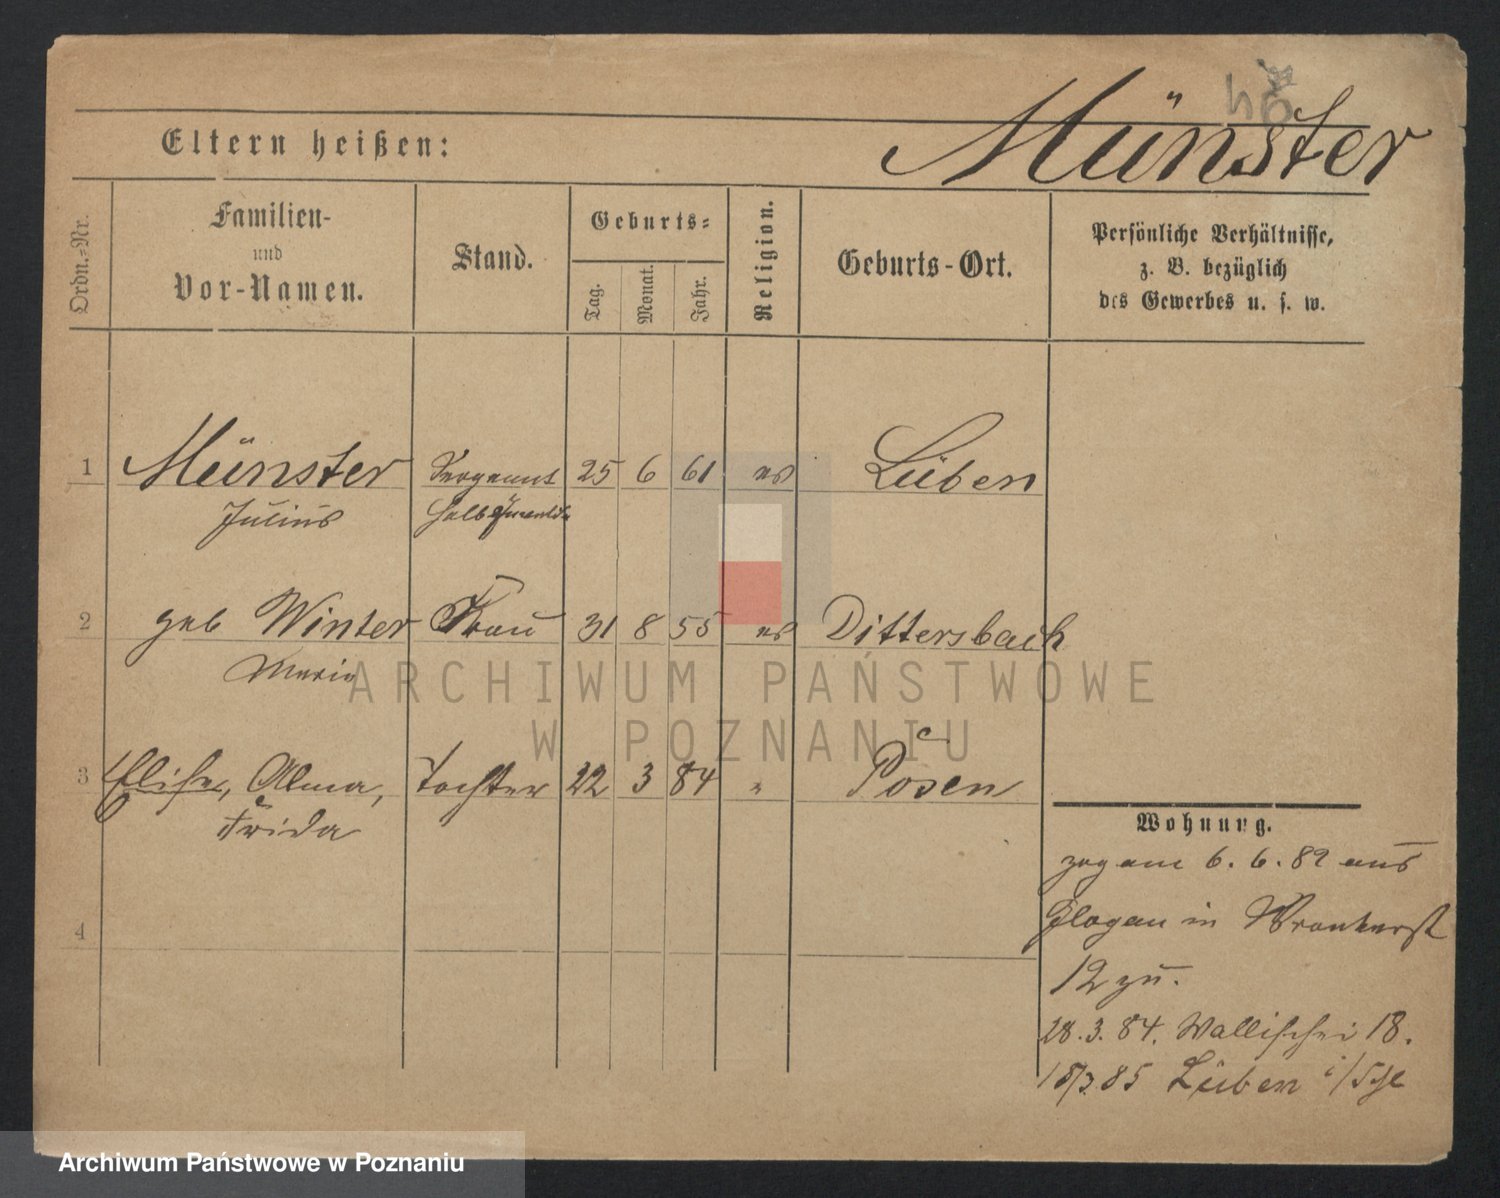 Münster
Eltern heißen:
Ordn.-Nr.
Familien-
und
Vor-Namen.
Stand.
Geburts-
Tag.
Monat.
Jahr.
Religion.
Geburts-Ort.
Persönliche Verhältnisse,
z. B. bezüglich
des Gewerbes u. s. w.
1 Münster Sergeant 25 6 61 ev Lüben
Julius
2 geb Winter Frau 31 8 55 ev Dittersbach
Marie
3 Elise, Alma, Tochter 22 3 84 " Posen
Frida
4
Wohnung.
zog am 6. 6. 82 aus
Glogau in Wronkerst
12 zu.
28. 3. 84. Wallischei 18.
18/3 85 Lüben i/Schl
ARCHIWUM PAŃSTWOWE
W POZNANIU
Archiwum Państwowe w Poznaniu